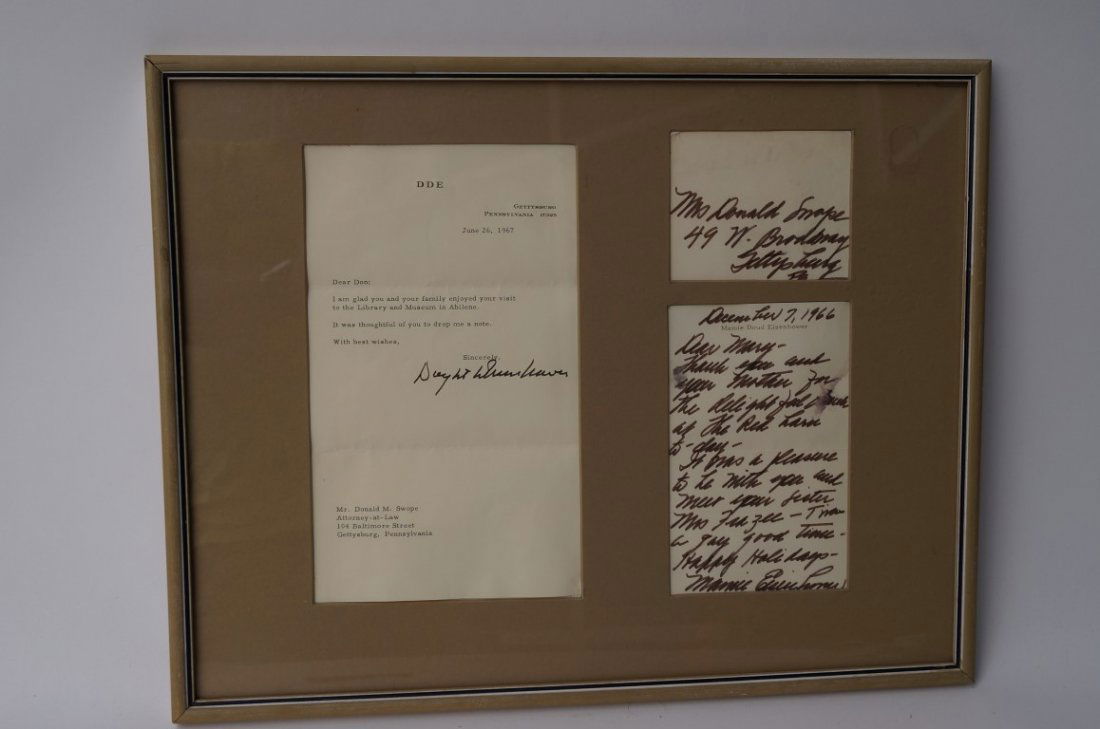 DDE
GETTYSBURG
PENNSYLVANIA
June 26, 1967
Dear Don:
I am glad you and your family enjoyed your visit
to the Library and Museum in Abilene.
It was thoughtful of you to drop me a note.
With best wishes,
Sincerely,
Dwight Eisenhower
Mr. Donald M. Swope
Attorney-at-Law
104 Baltimore Street
Gettysburg, Pennsylvania
Mrs Donald Swope
49 W. Broadway
Gettysburg
Pa
December 7, 1966
Mamie Doud Eisenhower
Dear Mary-
Thank you and
your Mother for
the delightful
at the Red Barn
to-day-
It was a pleasure
to be with you and
meet your sister
Mrs
a gay good time-
Happy Holidays-
Mamie Eisenhower